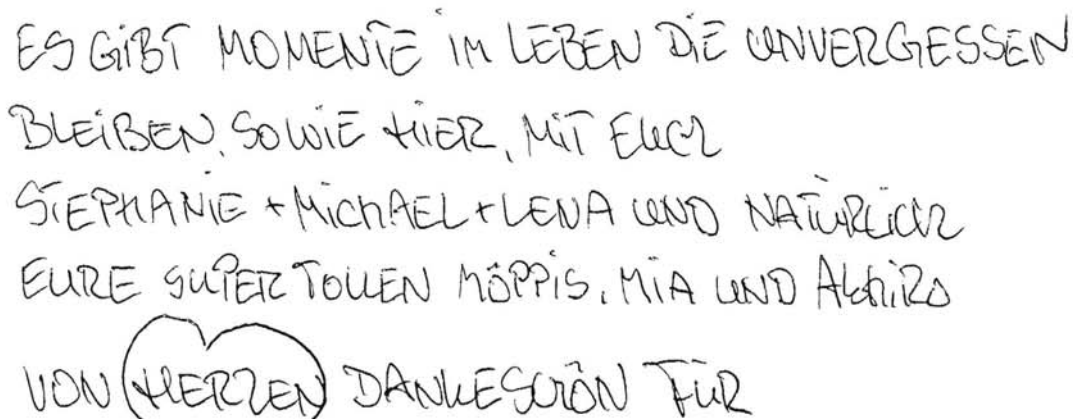 ES GIBT MOMENTE IM LEBEN DIE UNVERGESSEN
BLEIBEN, SOWIE HIER, MIT EUCH
STEPHANIE + MICHAEL + LENA UND NATÜRLICH
EURE SUPER TOLLEN MÖPPIS, MIA UND AKHIRO
VON HERZEN DANKESCHÖN FÜR